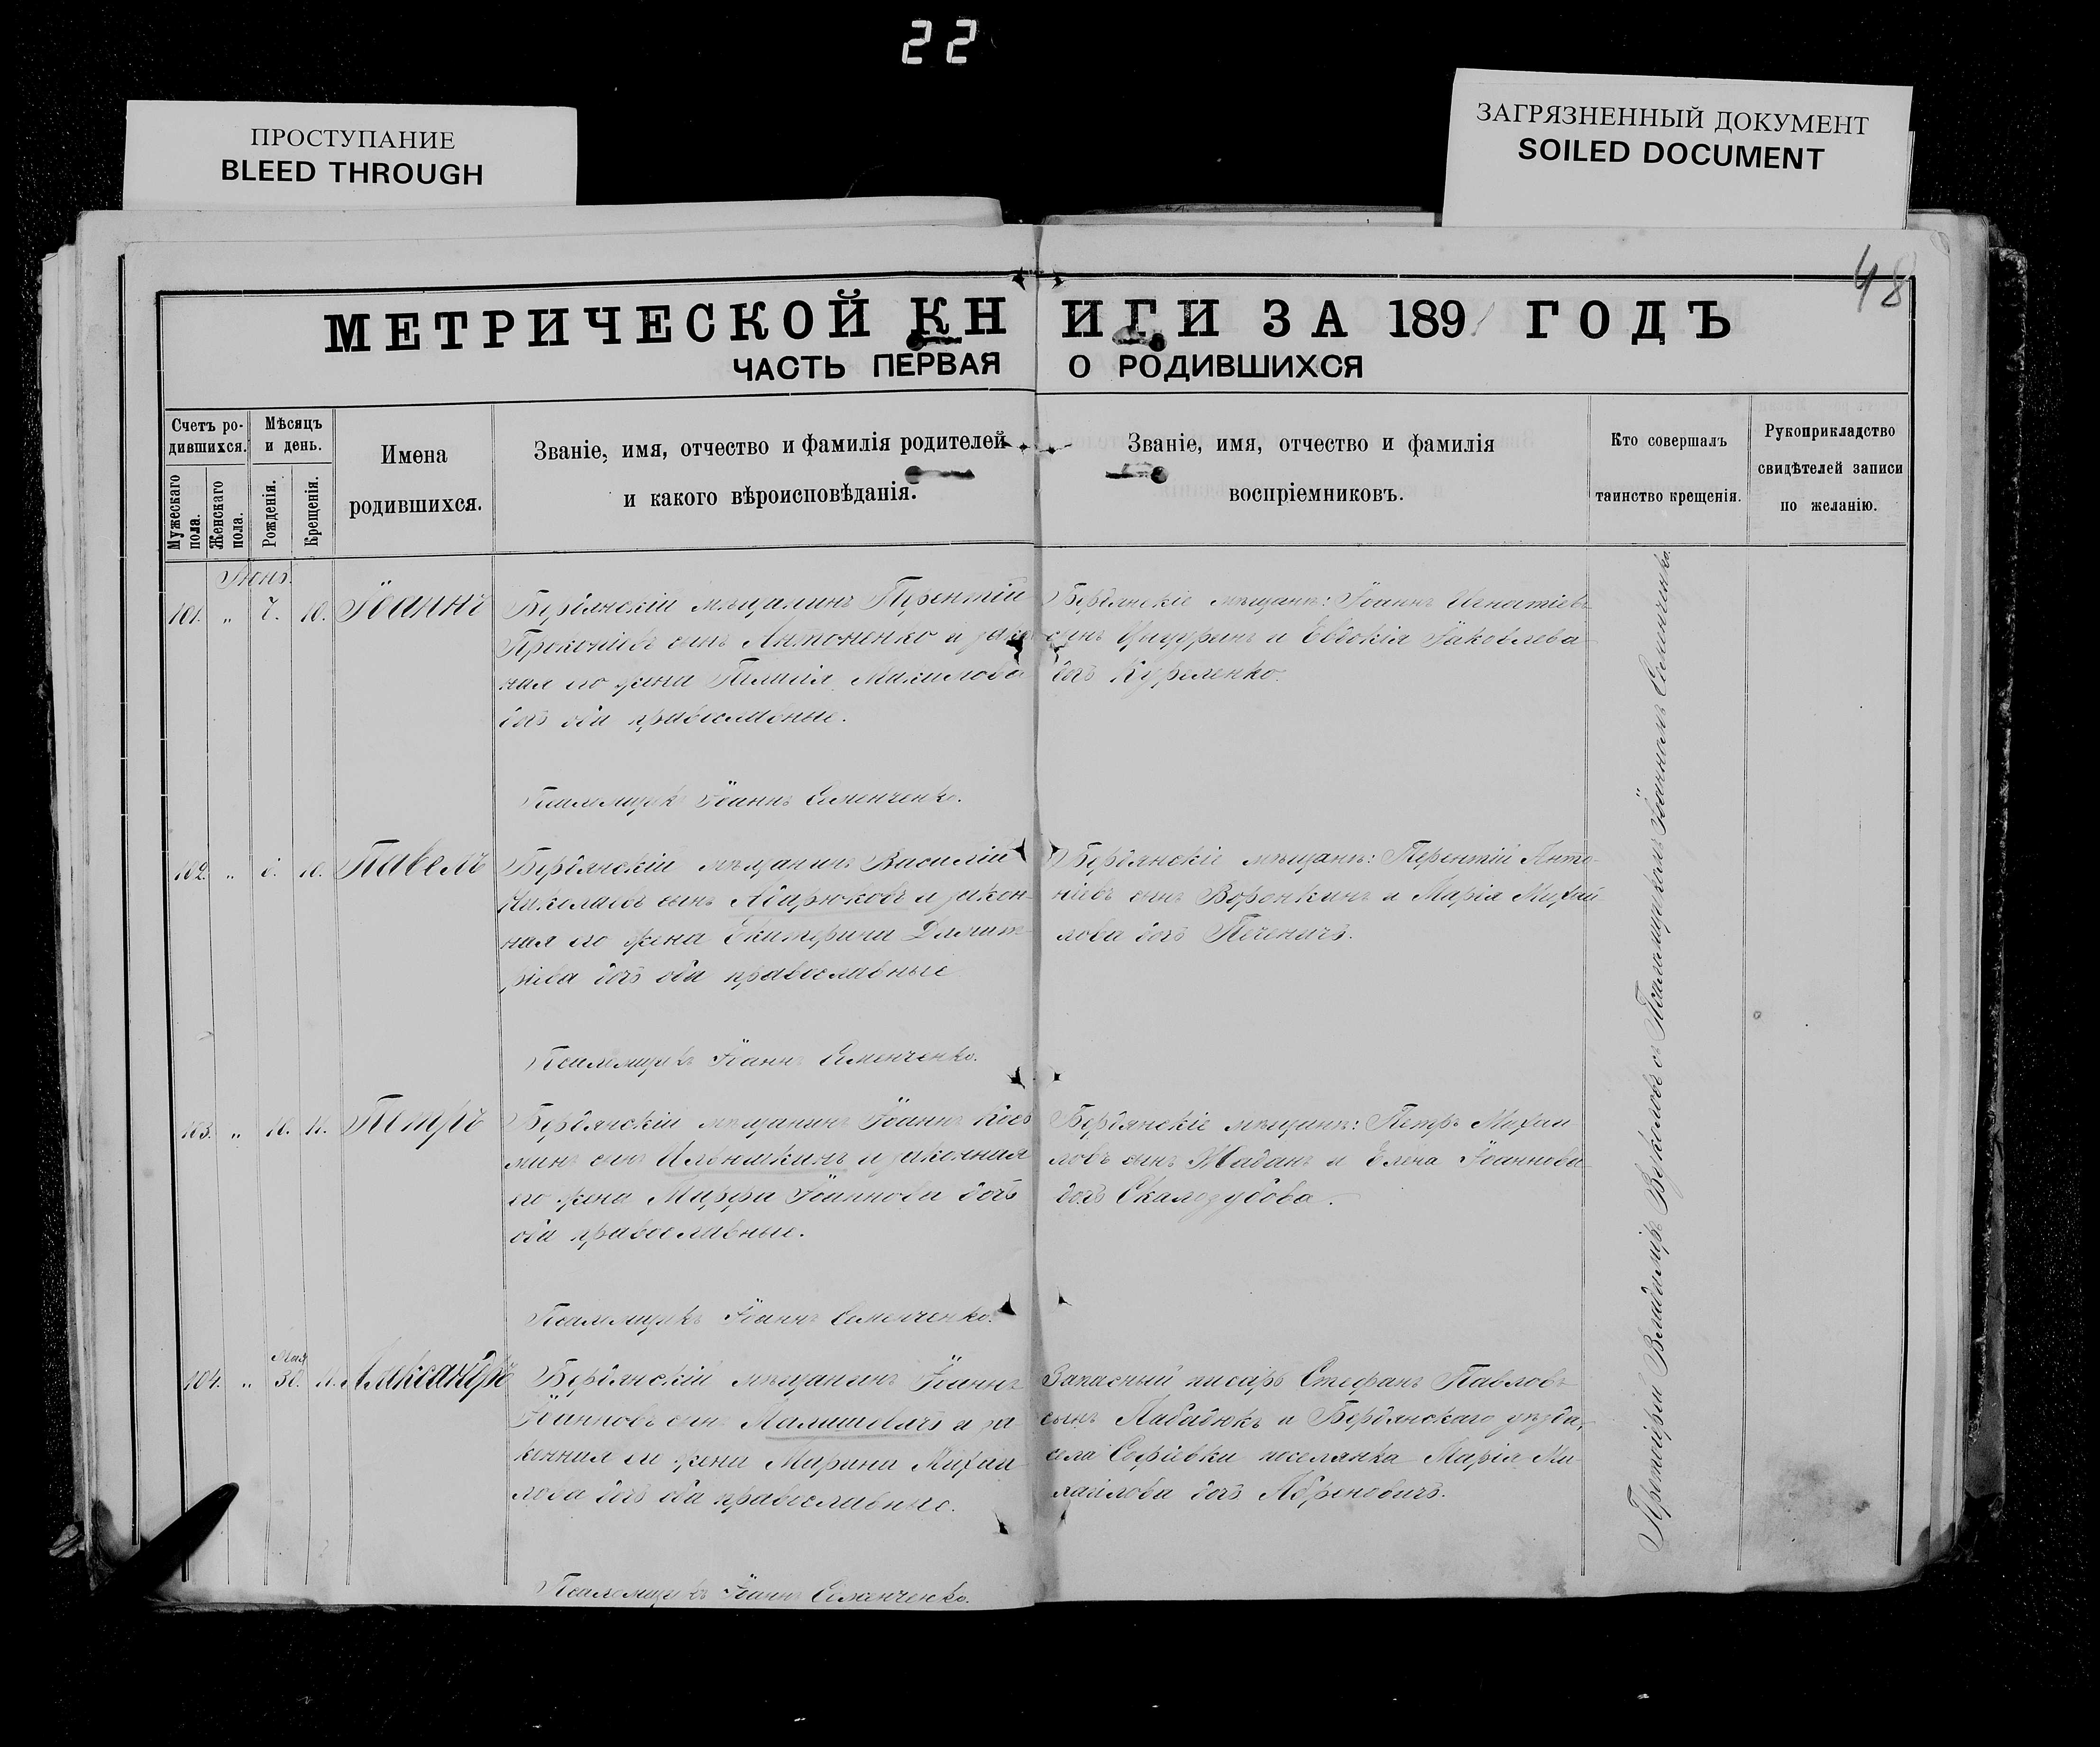 22
ПРОСТУПАНИЕ
BLEED THROUGH
ЗАГРЯЗНЕННЫЙ ДОКУМЕНТ
SOILED DOCUMENT
48
МЕТРИЧЕСКОЙ КНИГИ ЗА 1891 ГОДЪ
ЧАСТЬ ПЕРВАЯ О РОДИВШИХСЯ
Счетъ ро-
дившихся.
Мужескаго
пола.
Женскаго
пола.
Мѣсяцъ
и день.
Рожденія.
Крещенія.
Имена
родившихся.
Званіе, имя, отчество и фамилія родителей
и какого вѣроисповѣданія.
Званіе, имя, отчество и фамилія
воспріемниковъ.
Кто совершалъ
таинство крещенія.
Рукоприкладство
свидѣтелей записи
по желанію.
101. „ 7. 10. Іоаннъ
Бердянскій мѣщанинъ Терентій
Прокопіевъ сынъ Антоненко и зако
ная его жена
дочь оба православные.
Псаломщикъ Іоаннъ Семенченко.
Бердянскіе мѣщане: Іоаннъ Игнатіевъ
сынъ и Евдокія Іаковлева
дочь
102. „ 10. Павелъ
Бердянскій мѣщанинъ Василій
Николаевъ сынъ и закон-
ная его жена Екатерина Димит-
ріева дочь оба православные
Псаломщикъ Іоаннъ Семенченко.
Бердянскіе мѣщане: Терентій Анто-
ніевъ сынъ Воронкинъ и Марія Михаи
лова дочь
103. „ 10. 11. Петръ
Бердянскій мѣщанинъ Іоаннъ
сынъ и законная
его жена Марфа Іоаннова дочь
оба православные.
Псаломщикъ Іоаннъ Семенченко.
Бердянскіе мѣщане: Петръ Михаи
ловъ сынъ Жаданъ и Елена Іоаннова
дочь Скалозубова.
104. „ Мая 30. 11. Александръ
Бердянскій мѣщанинъ Іоаннъ
Іоанновъ сынъ и за
конная его жена Марина Михаи
лова дочь оба православные.
Псаломщикъ Іоаннъ Семенченко.
Запасный писарь Стефанъ Павловъ
сынъ и Бердянскаго уѣзда,
села Софіевки поселянка Марія Ми
хаилова дочь
Протоіерей Владиміръ съ Псаломщикомъ Іоанномъ Семенченко.